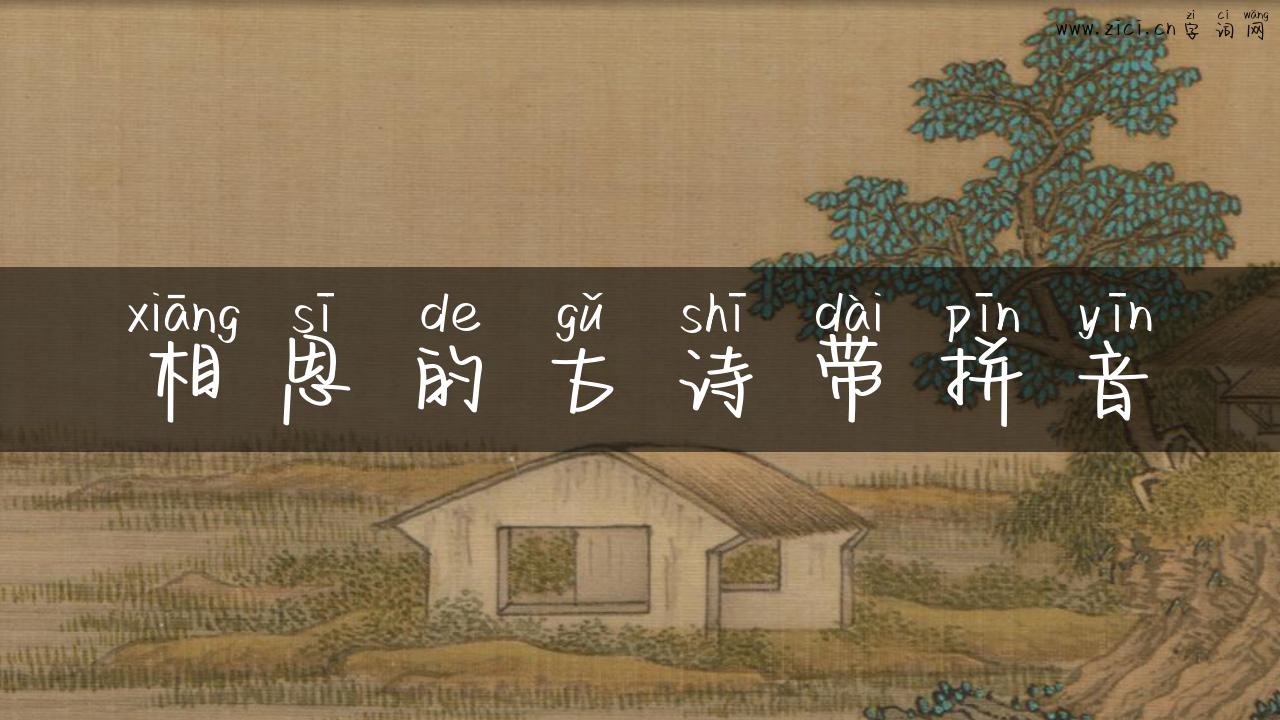 zì cí wǎng
www.zici.cn 字词网
xiāng sī de gǔ shī dài pīn yīn
相思的古诗带拼音